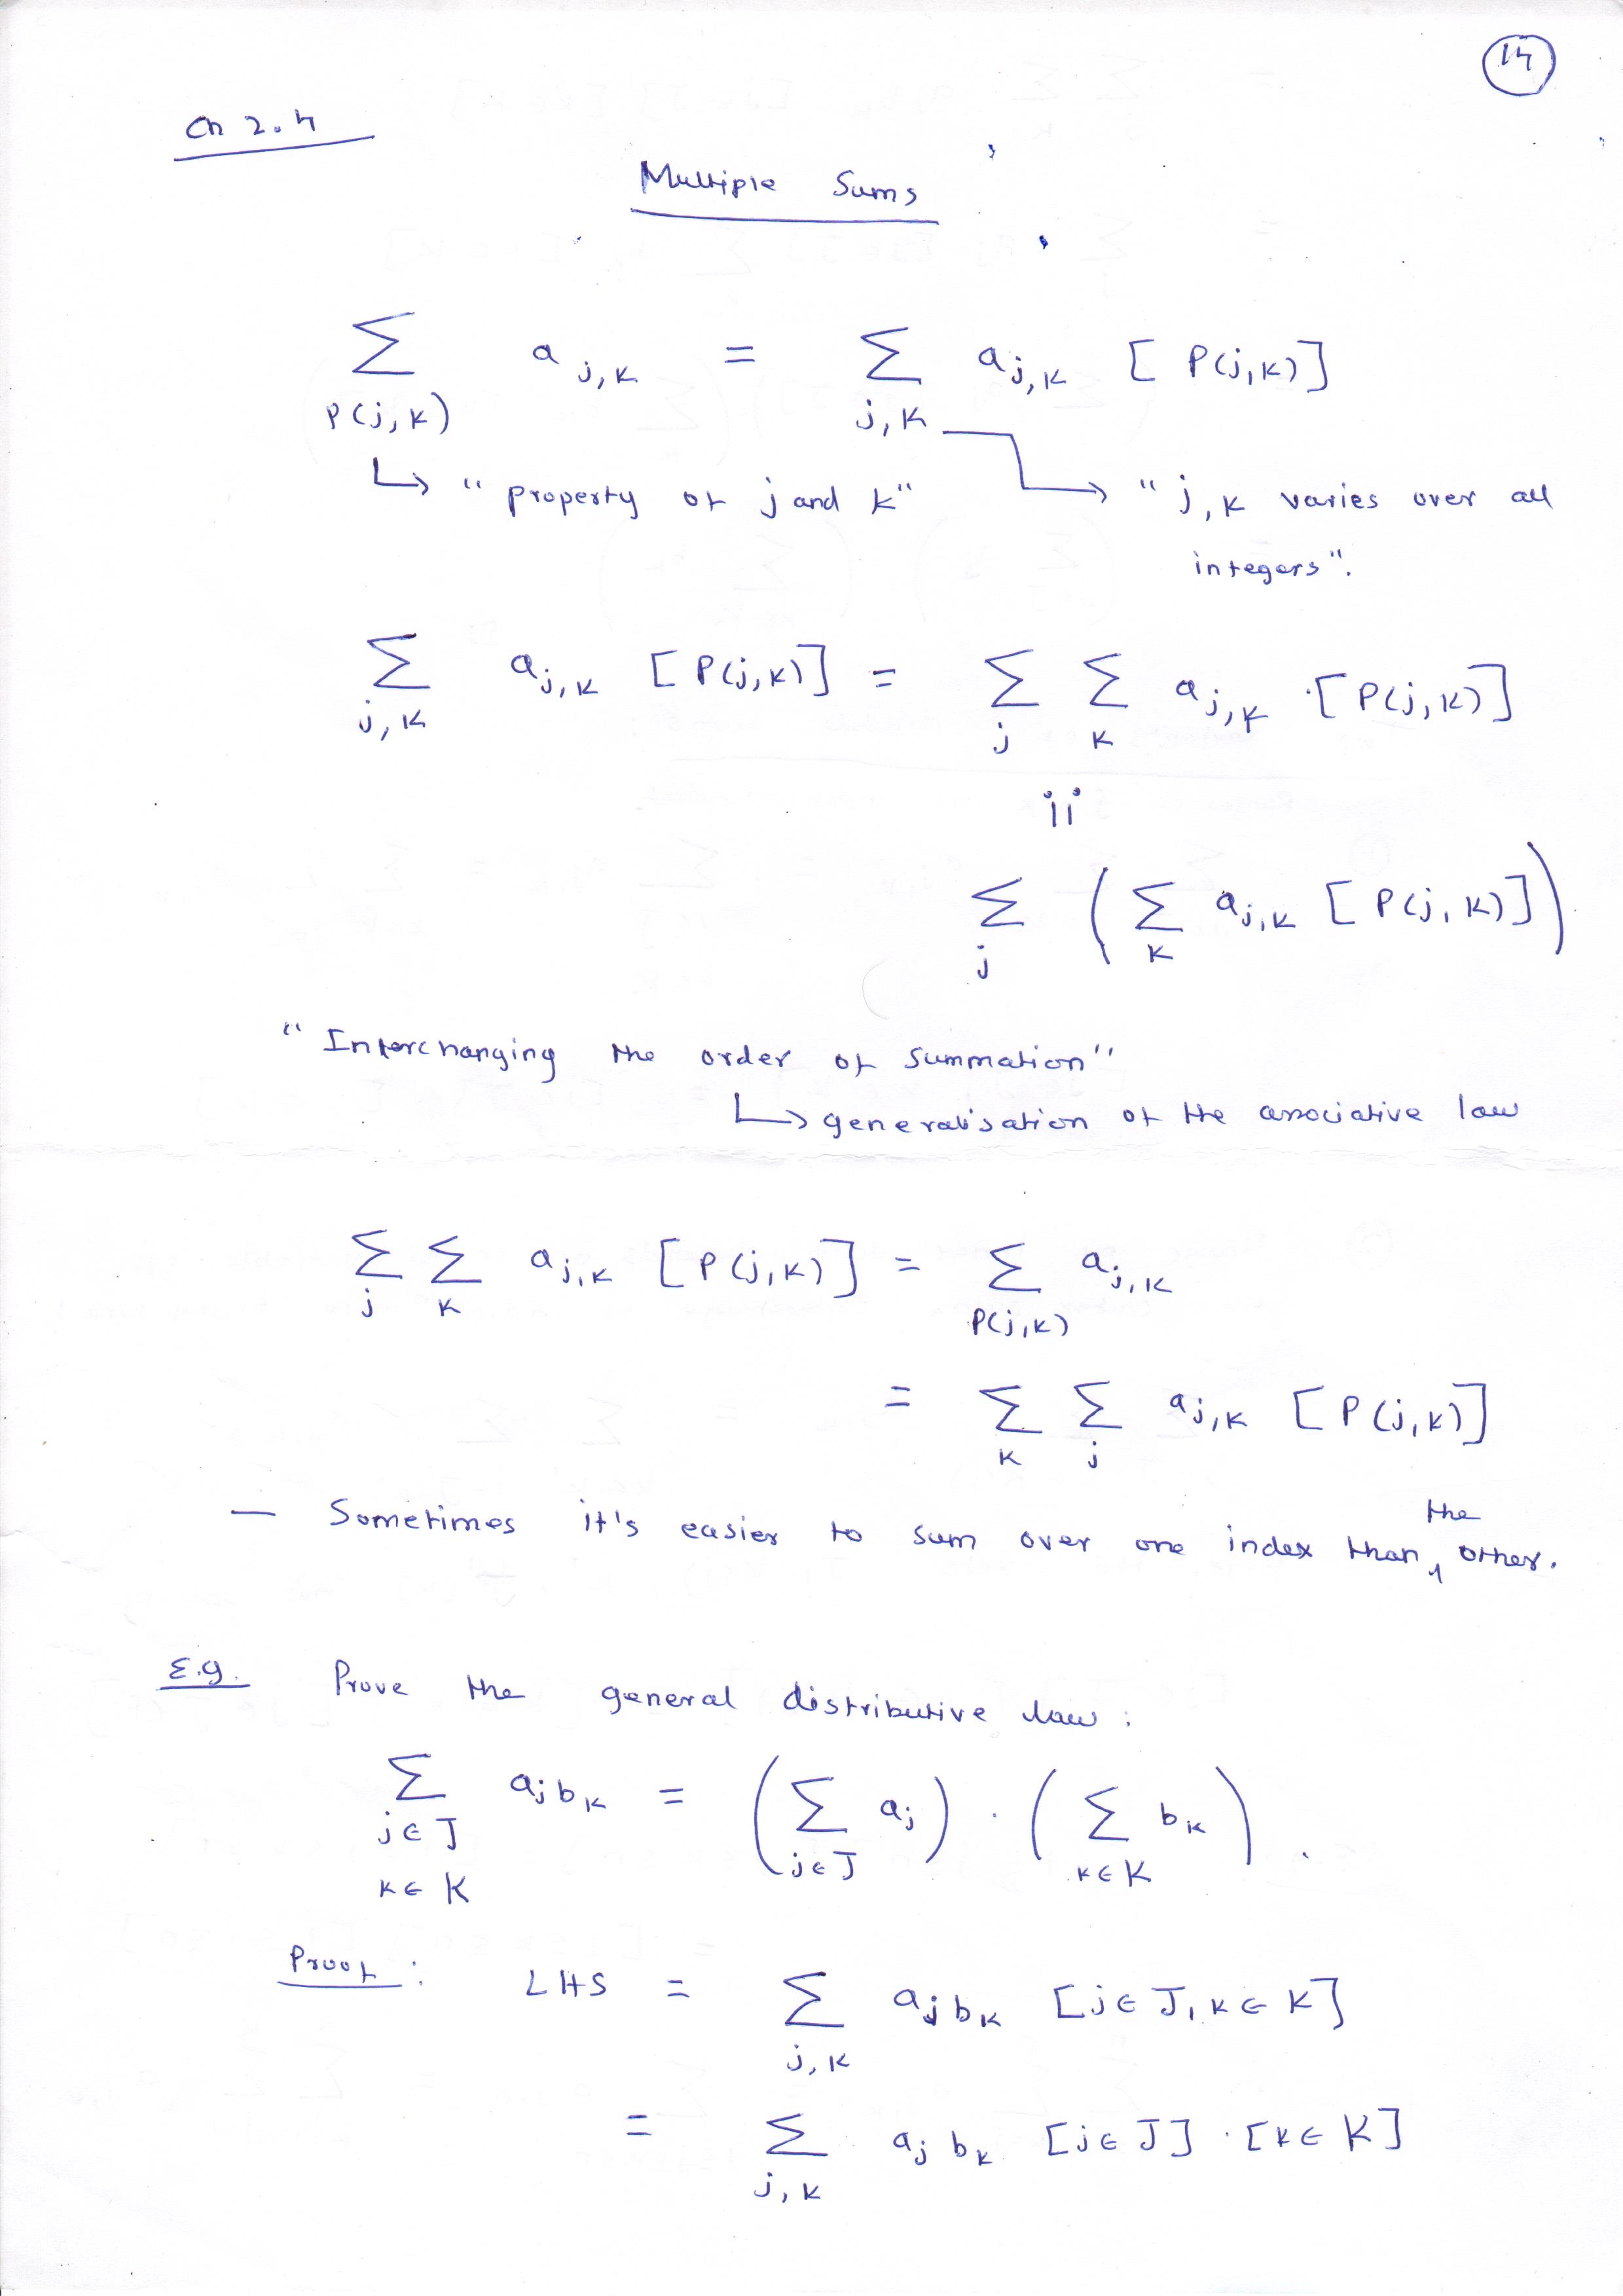 14
Ch 2.4
Multiple Sums
∑_{P(j,k)} a_{j,k} = ∑_{j,k} a_{j,k} [P(j,k)]
↳ "property of j and k" ↳ "j,k varies over all
integers".
∑_{j,k} a_{j,k} [P(j,k)] = ∑_j ∑_k a_{j,k} · [P(j,k)]
॥
∑_j (∑_k a_{j,k} [P(j,k)])
"Interchanging the order of summation"
↳ generalisation of the associative law
∑_j ∑_k a_{j,k} [P(j,k)] = ∑_{P(j,k)} a_{j,k}
= ∑_k ∑_j a_{j,k} [P(j,k)]
— Sometimes it's easier to sum over one index than the other.
E.g. Prove the general distributive law :
∑_{j∈J k∈K} a_j b_k = (∑_{j∈J} a_j) · (∑_{k∈K} b_k).
Proof : LHS = ∑_{j,k} a_j b_k [j∈J, k∈K]
= ∑_{j,k} a_j b_k [j∈J] · [k∈K]